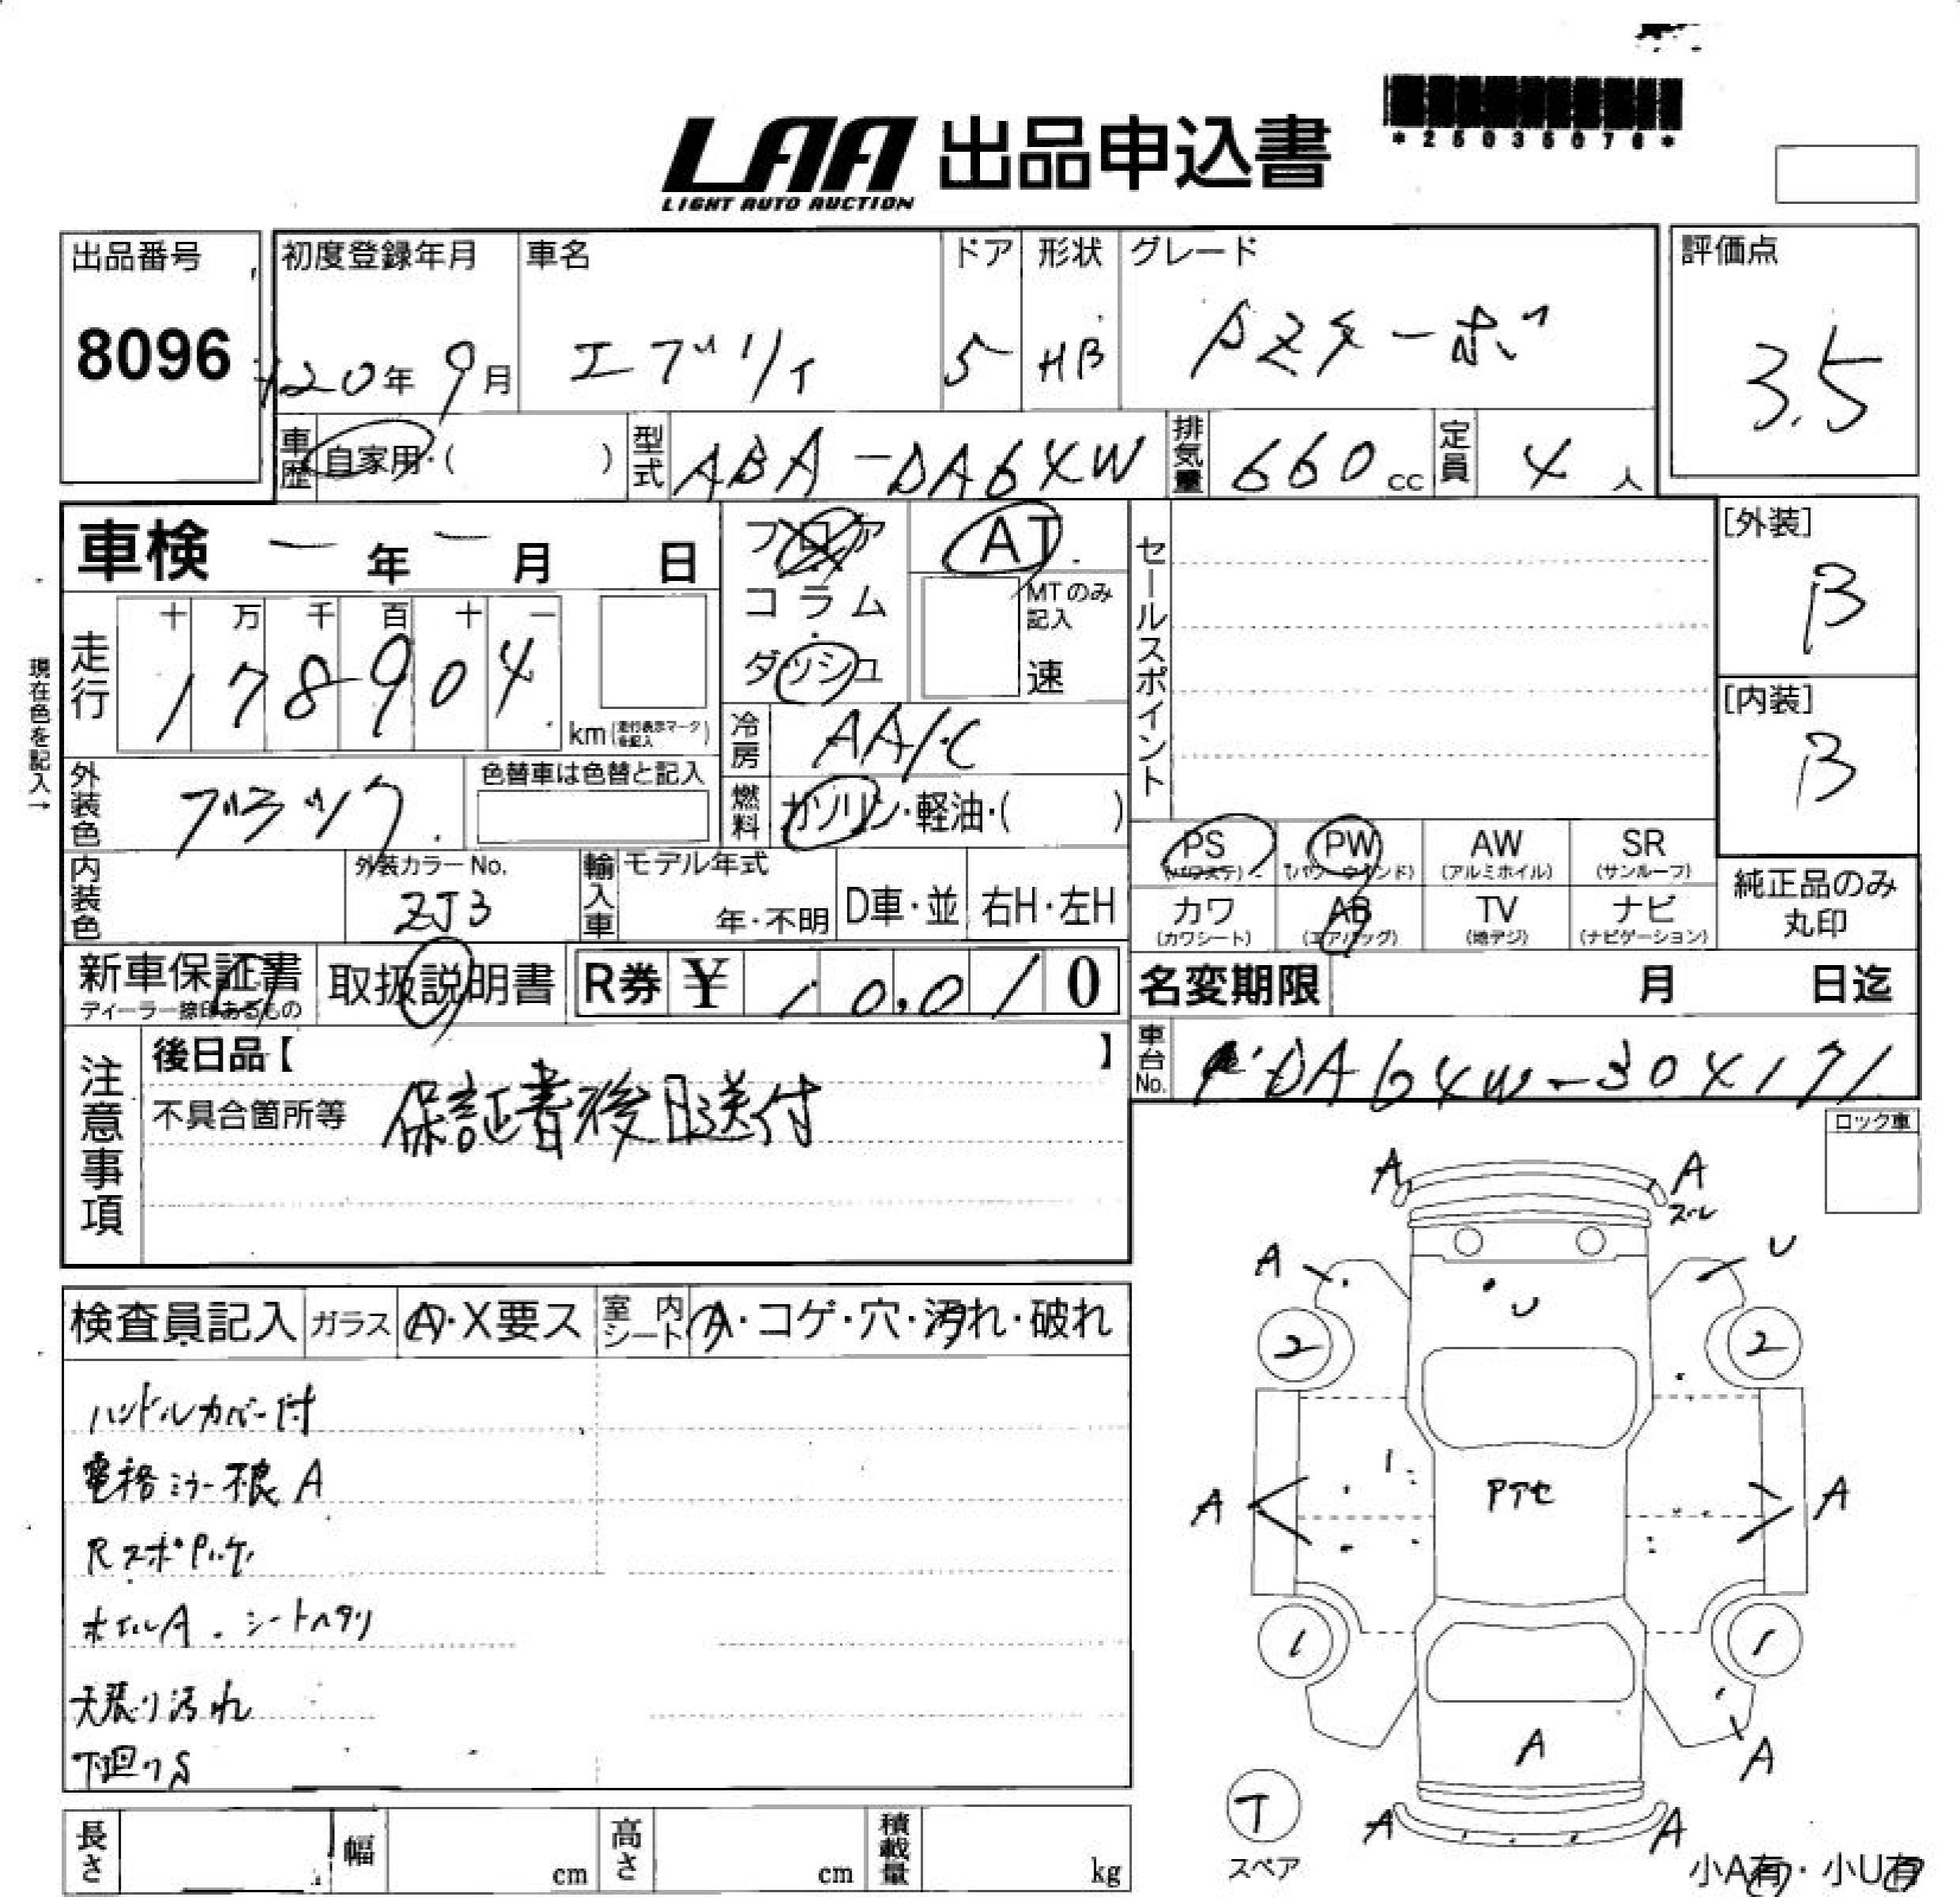 *25035076*
LAA 出品申込書
LIGHT AUTO AUCTION
出品番号 初度登録年月 車名 ドア 形状 グレード 評価点
8096 H20年 9月 エブリイ 5 HB PZターボ 3.5
車歴 自家用・( ) 型式 ABA-DA64W 排気量 660cc 定員 4人
車検 ー年 ー月 日 フロア AT セールスポイント [外装]
B
コラム MTのみ記入
走行 十 万 千 百 十 一
178904 km(走行表示マークを記入) ダッシュ 速 [内装]
B
現在色を記入→
冷房 AA/C
外装色 ブラック 色替車は色替と記入 燃料 ガソリン・軽油・( )
PS (パワステ) PW (パワーウインド) AW (アルミホイル) SR (サンルーフ)
内装色 外装カラーNo. ZJ3 輸入車 モデル年式 年・不明 D車・並 右H・左H
カワ (カワシート) AB (エアバッグ) TV (地デジ) ナビ (ナビゲーション) 純正品のみ丸印
新車保証書 ディーラー捺印あるもの 取扱説明書 R券 ¥ 10,010 名変期限 月 日迄
車台No. DA64W-304171
注意事項 後日品【 】
不具合箇所等 保証書後日送付
ロック車
A A
スレ
A U
U
検査員記入 ガラス A・X要ス 室内シート A・コゲ・穴・汚れ・破れ
2 2
ハンドルカバー付
電格ミラー不良 A
A Pアセ A
Rスポ
ホイルA.シートヘタリ
1 1
天張り汚れ
下廻りS
A A
T
スペア
A A
長さ 幅 cm 高さ cm 積載量 kg
小A有・小U有